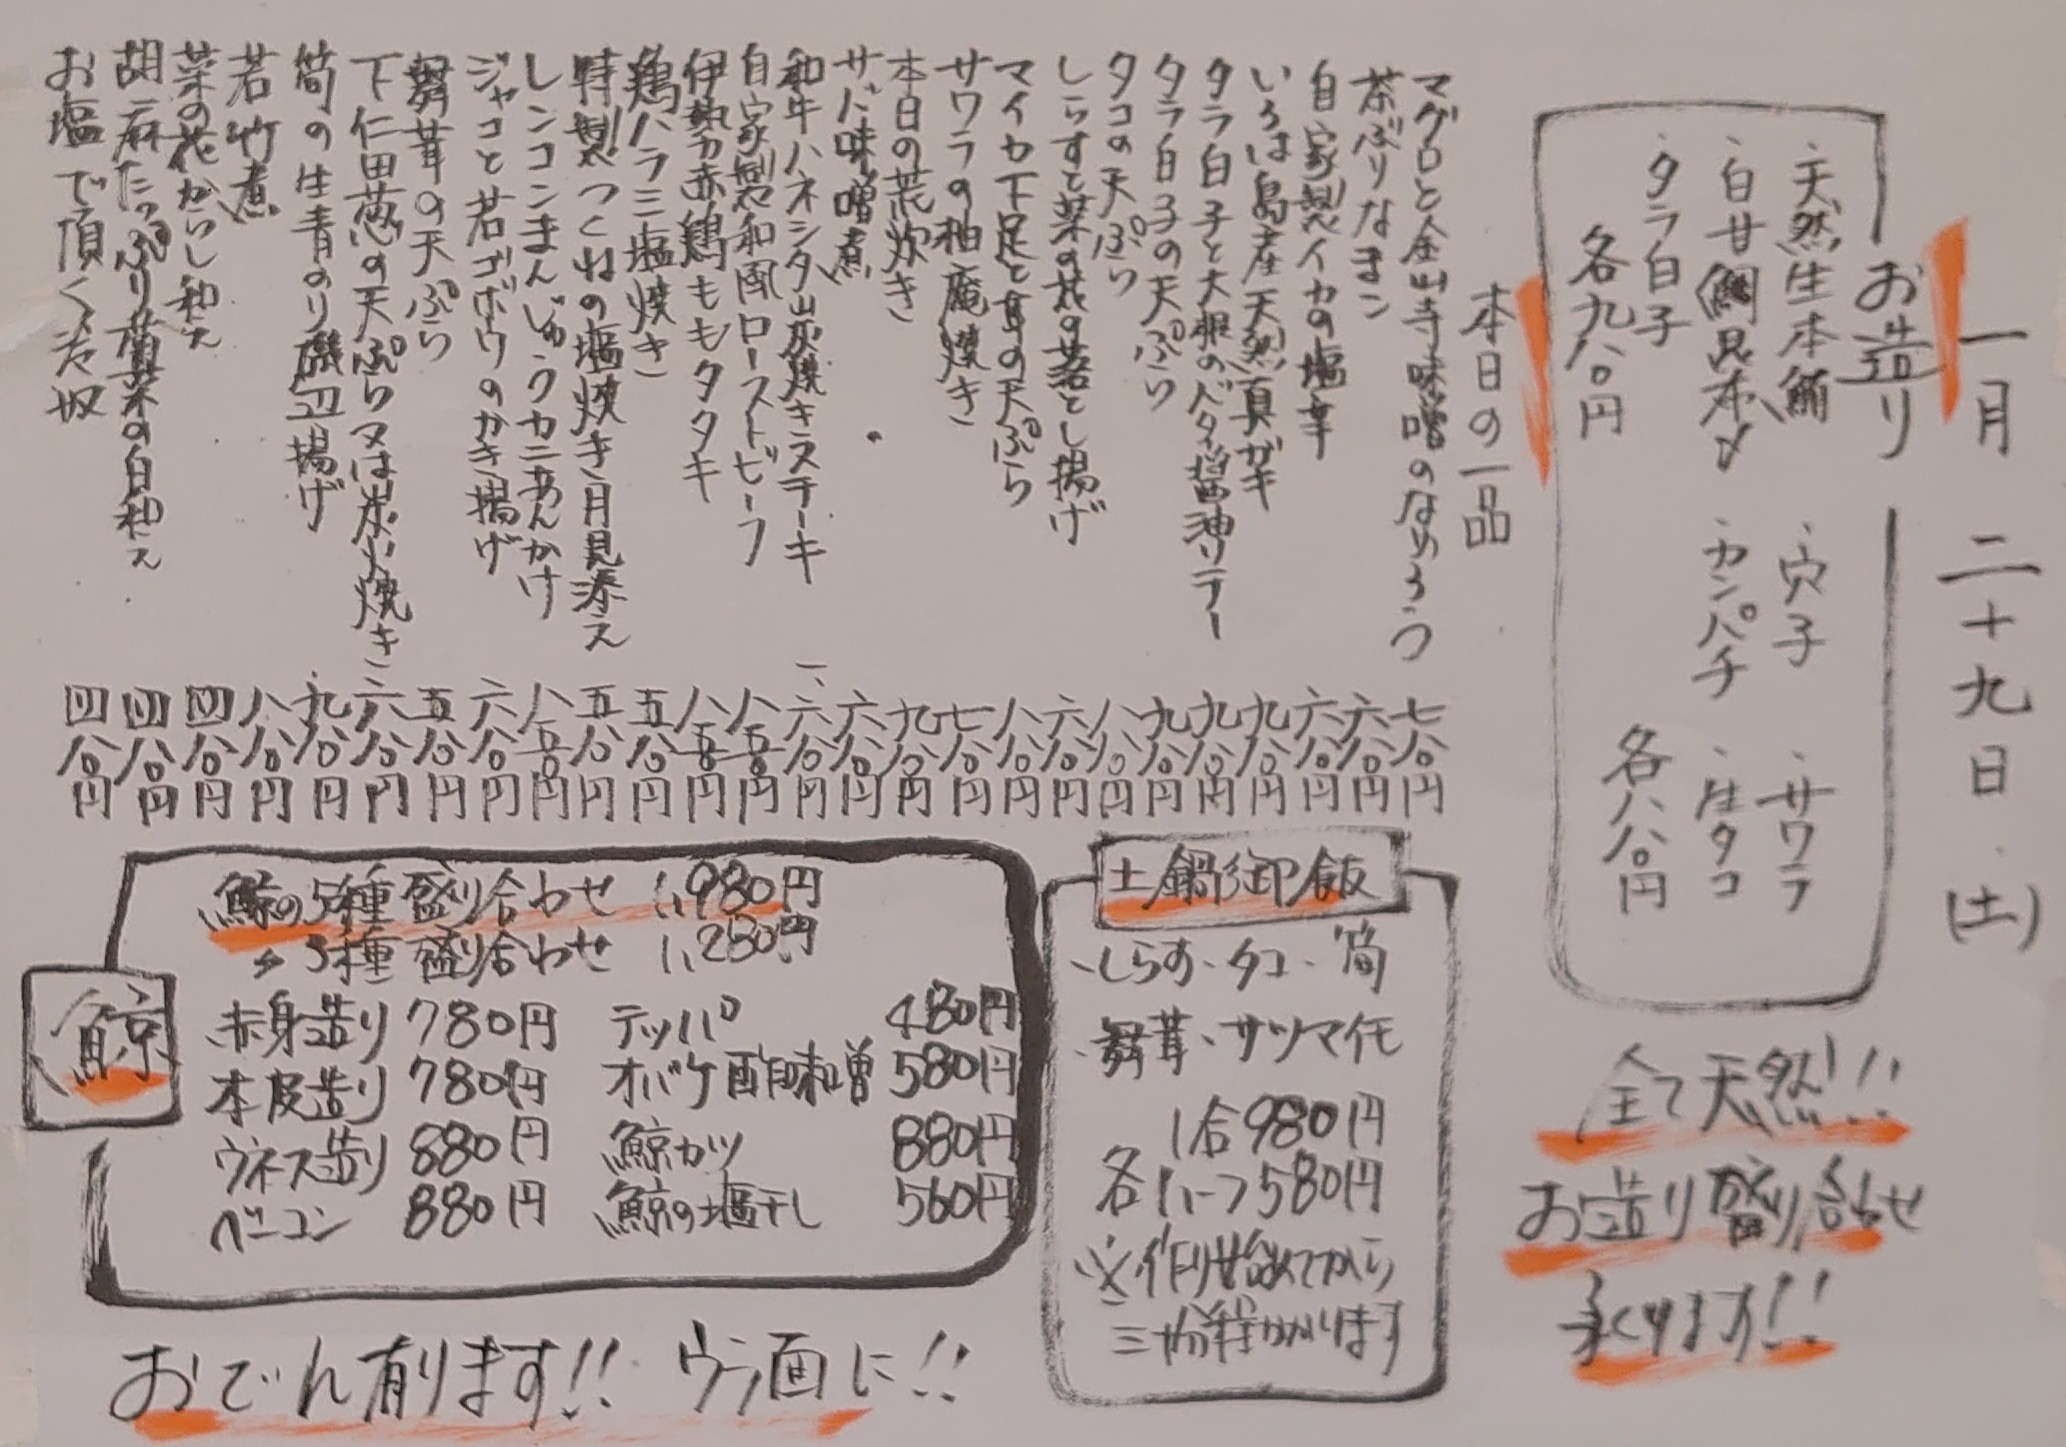 一月二十九日(土)
お造り
・天然生本鮪
・穴子
・サワラ
・白甘鯛昆布〆
・カンパチ
・生タコ
・タラ白子
各九八〇円
各八八〇円
全て天然!!
お造り盛り合せ
承ります!!
本日の一品
マグロと金山寺味噌のなめろう 七八〇円
茶ぶりなまこ 六八〇円
自家製イカの塩辛 六八〇円
いろは島産天然真ガキ 九八〇円
タラ白子と大根のバタ醤油ソテー 九八〇円
タラ白子の天ぷら 九八〇円
タコの天ぷら 八八〇円
しらすと菜の花の落とし揚げ 六八〇円
マイカ下足と耳の天ぷら 八八〇円
サワラの柚庵焼き 七八〇円
本日の荒炊き 九八〇円
サバ味噌煮 六八〇円
和牛ハネシタ炭焼きステーキ 一、六八〇円
自家製和風ローストビーフ 八五〇円
伊勢赤鶏ももタタキ 八五〇円
鶏ハラミ塩焼き 五八〇円
特製つくねの塩焼き月見添え 五八〇円
レンコンまんじゅうカニあんかけ 八五〇円
ジャコと若ゴボウのかき揚げ 六八〇円
舞茸の天ぷら 五八〇円
下仁田葱の天ぷら又は炭火焼き 六八〇円
筍の生青のり磯辺揚げ 九八〇円
若竹煮 八八〇円
菜の花からし和え 四八〇円
胡麻たっぷり葉菜の白和え 四八〇円
お塩で頂く冷奴 四八〇円
土鍋御飯
・しらす・タコ・筍
・舞茸・サツマイモ
1合980円
各ハーフ580円
※作り始めてから
三十分程かかります
鯨
鯨の5種盛り合わせ 1,980円
〃3種盛り合わせ 1,280円
赤身造り 780円 テッパ 480円
本皮造り 780円 オバケ酢味噌 580円
ウネス造り 880円 鯨カツ 880円
ベーコン 880円 鯨の塩干し 560円
おでん有ります!! ウラ面に!!